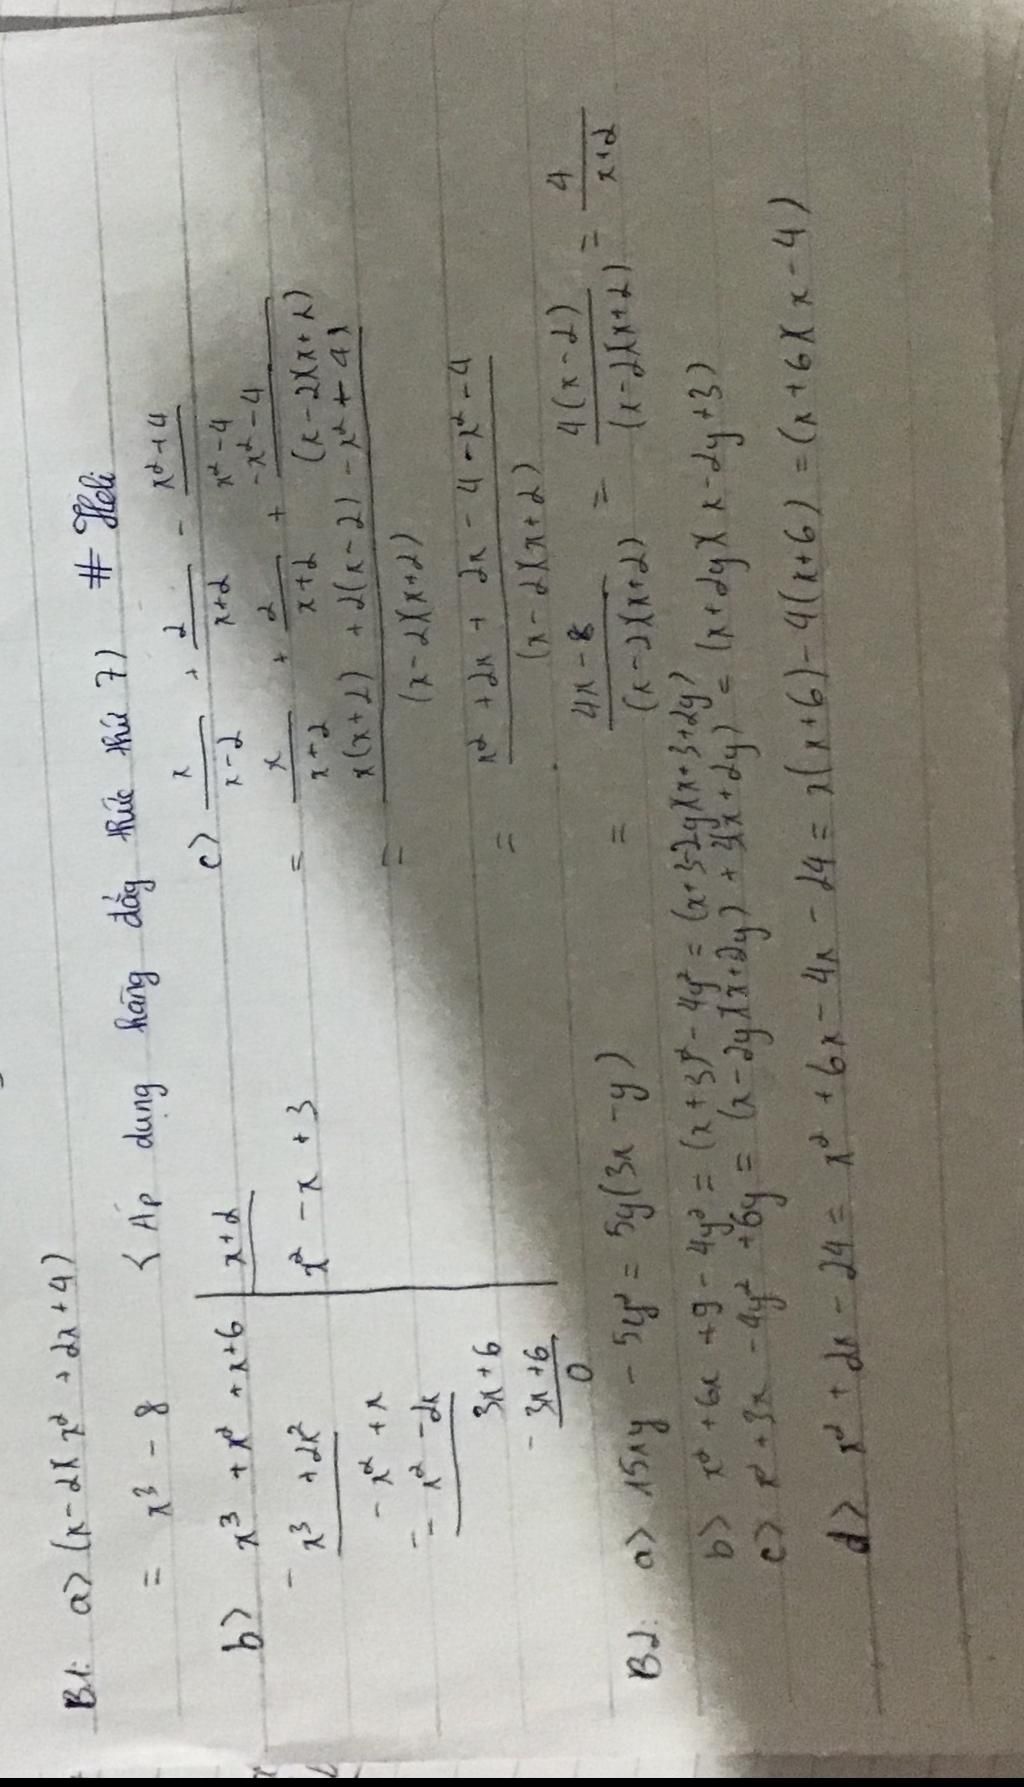 B1: a> (x-2)(x² + 2x + 4)
= x³ - 8 (Áp dụng hằng đẳng thức thứ 7) # Heli
b> x³ + x² + x + 6 | x+2
- x³ + 2x² | x² - x + 3
- x² + x
- - x² - 2x
3x + 6
- 3x + 6
0
c> x/(x-2) + 2/(x+2) - (x²+4)/(x²-4)
= x/(x-2) + 2/(x+2) + (-x²-4)/((x-2)(x+2))
= (x(x+2) + 2(x-2) - x² + 4)/((x-2)(x+2))
= (x² + 2x + 2x - 4 - x² - 4)/((x-2)(x+2))
= (4x - 8)/((x-2)(x+2)) = 4(x-2)/((x-2)(x+2)) = 4/(x+2)
B2: a> 15xy - 5y² = 5y(3x - y)
b> x² + 6x + 9 - 4y² = (x+3)² - 4y² = (x+3-2y)(x+3+2y)
c> x² + 3x - 4y² + 6y = (x-2y)(x+2y) + 3(x+2y) = (x+2y)(x-2y+3)
d> x² + 2x - 24 = x² + 6x - 4x - 24 = x(x+6) - 4(x+6) = (x+6)(x-4)